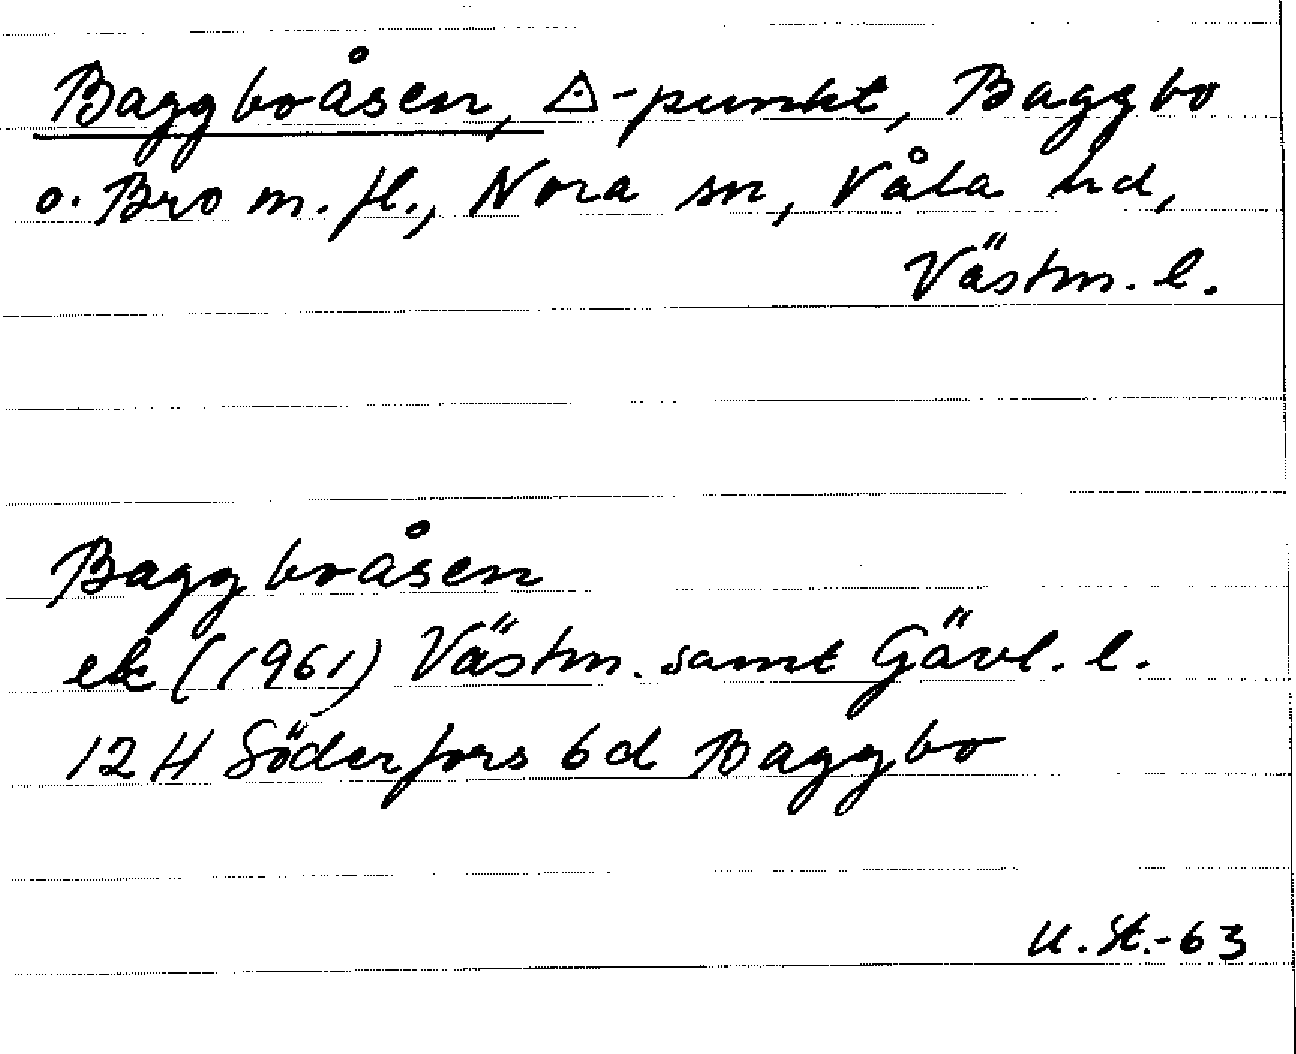 Baggboåsen, △-punkt, Baggbo
o. Bro m. fl., Nora sn, Våla hd,
Västm. l.
Baggboåsen
ek (1961) Västm. samt Gävl. l.
12 H Söderfors 6d Baggbo
U. St.-63